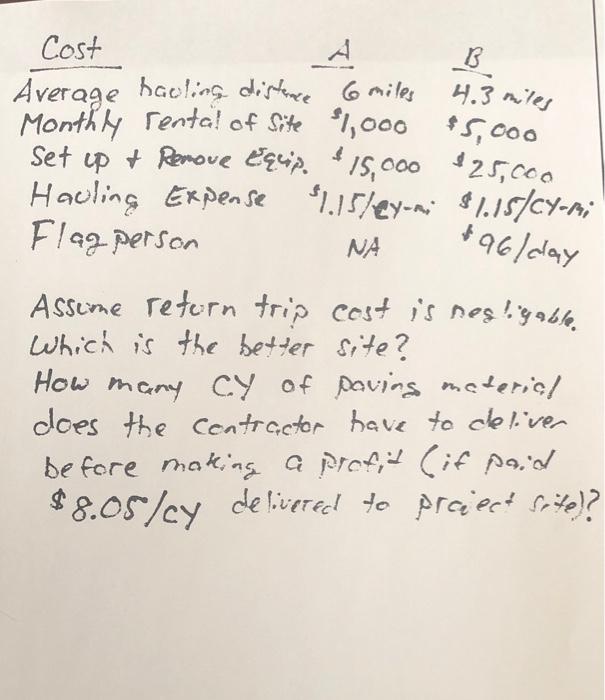 Cost A B
Average hauling distance 6 miles 4.3 miles
Monthly rental of Site $1,000 $5,000
Set up + Remove Equip. $15,000 $25,000
Hauling Expense $1.15/cy-mi $1.15/CY-mi
Flag person NA $96/day
Assume return trip cost is negligable.
Which is the better site?
How many CY of paving material
does the contractor have to deliver
before making a profit (if paid
$8.05/cy delivered to project site)?